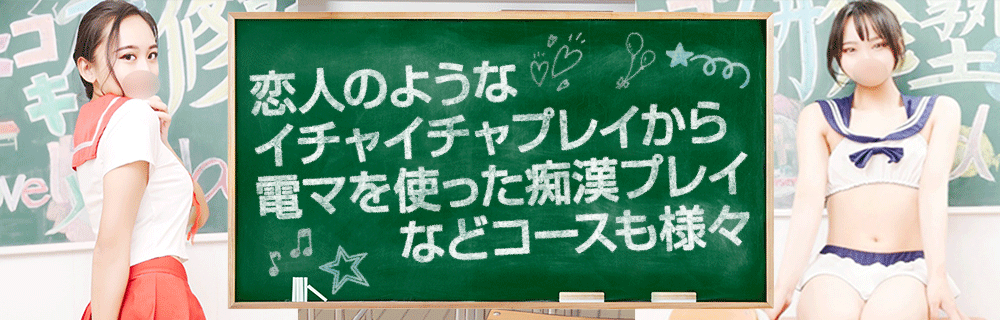 恋人のような
イチャイチャプレイから
電マを使った痴漢プレイ
などコースも様々